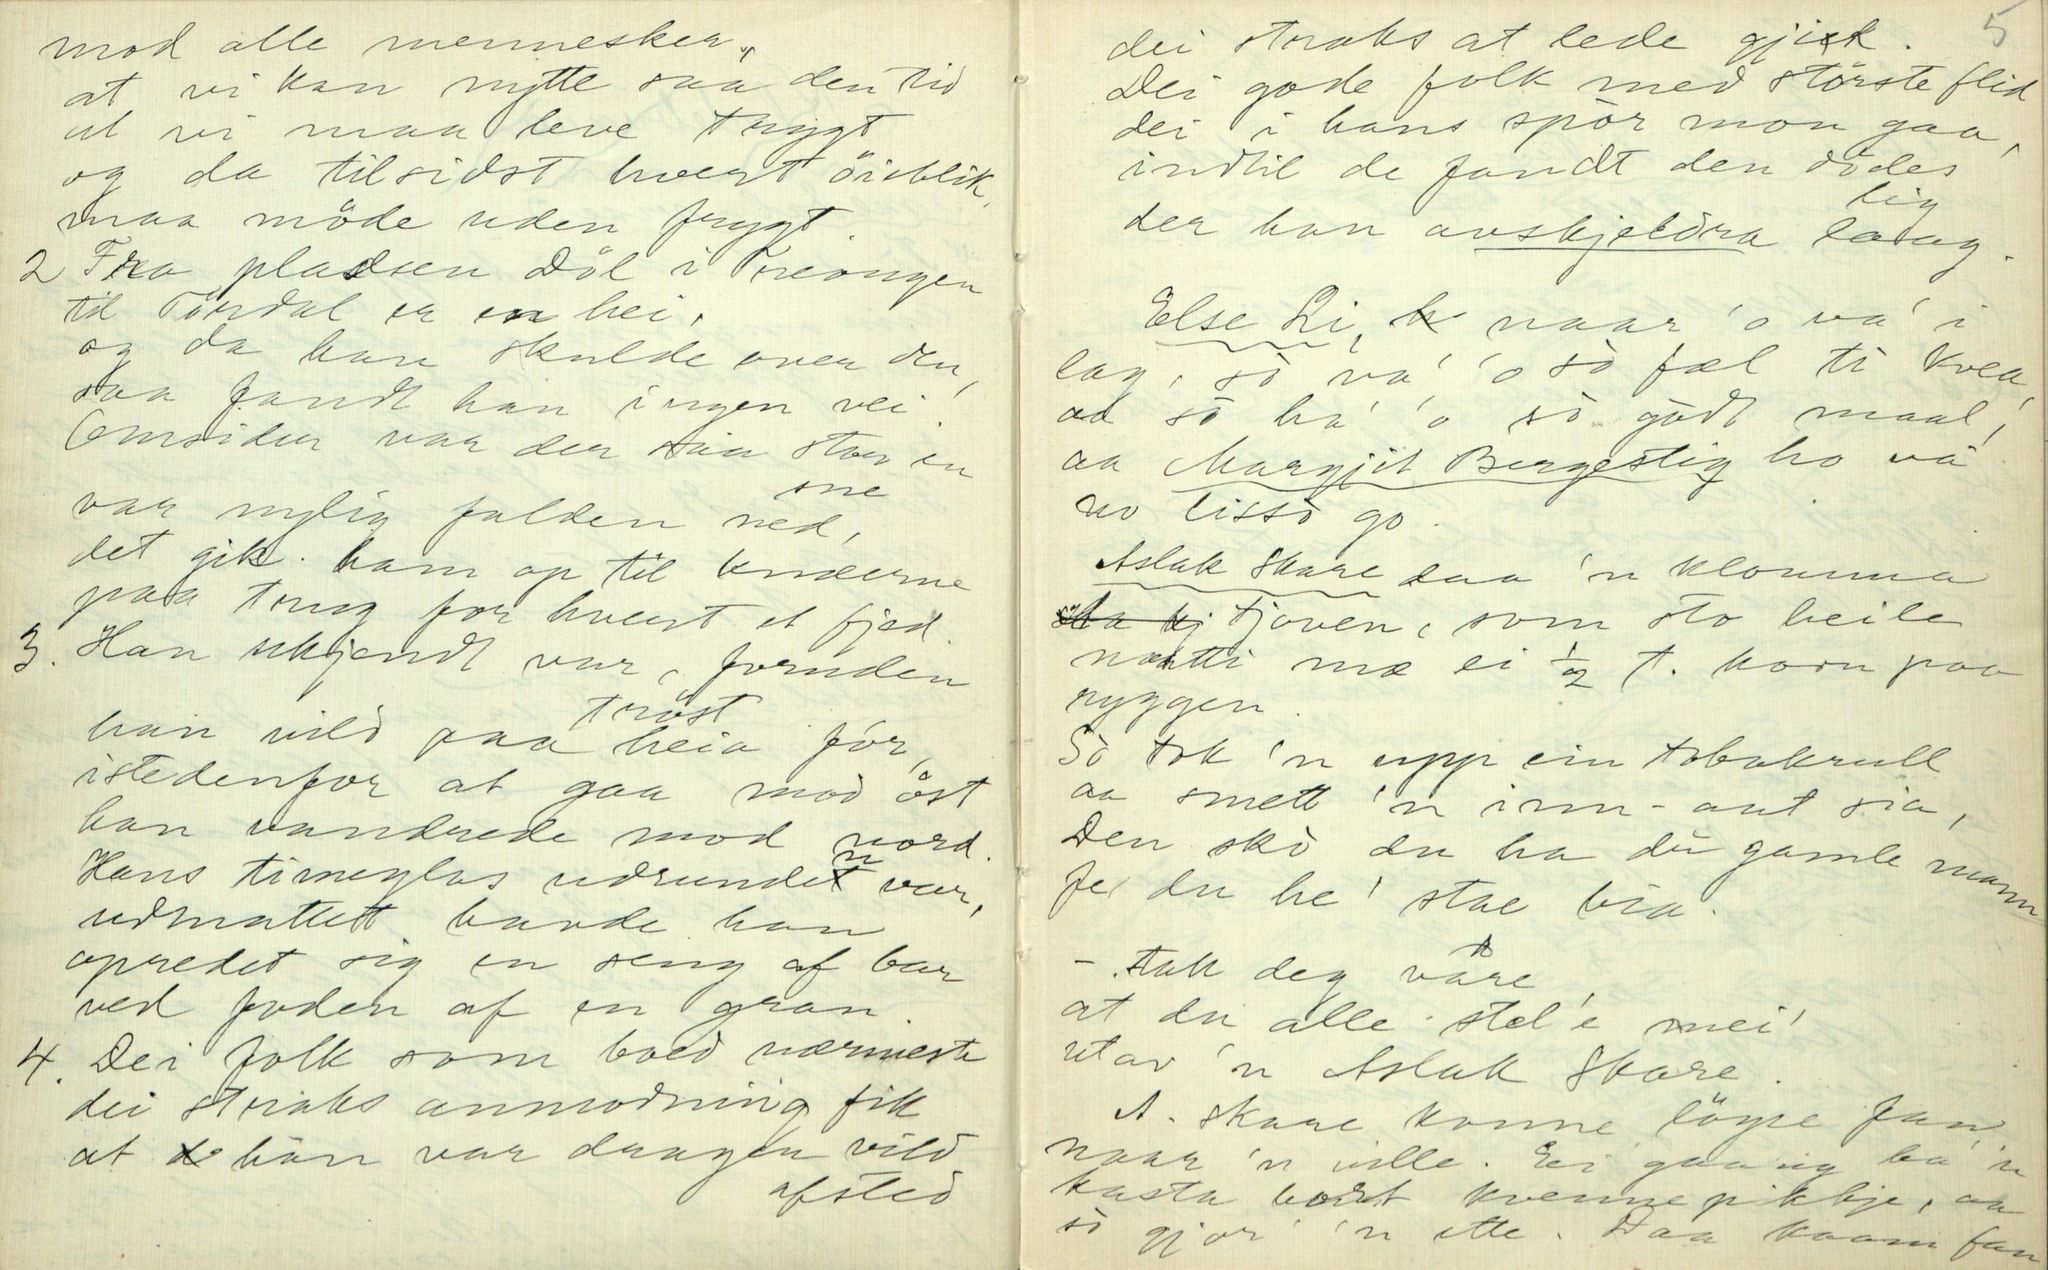 mod alle mennesker,
at vi kan nytte saa den tid
at vi maa leve trygt
og da tilsidst hvert öieblik,
maa möde uden frygt.
2 Fra pladsen Döl i Treungen
til Tördal er en hei,
og da han skulde over den,
saa fandt han ingen vei
Omsider var der saa stor en
sne
var nylig falden ned,
det gik ham op til knderne
paa trug for hvert et fjed.
3. Han ukjendt var, foruden
tröst
han vild paa heia fór,
istedenfor at gaa mod öst
han vandrede mod nord.
Hans timeglas udrundet var,
udmattet havde han
opredet sig en seng af bar
ved foden af en gran.
4. Dei folk som boed nærmeste
dei straks anmodning fik
at han var dragen vild
afsted
5
dei straks at lede gjik.
Dei gode folk med störste flid
dei i hans spör mon gaa,
indtil de fandt den dödes
lig
der han avskjeldra laag.
Else Li, naar 'o va' i
lag, sò va' 'o sò fæl ti kvea,
aa sò ha' 'o sò gòdt maal,
aa Margjit Bergestig ho va
no lissò go.
Aslak Skare daa 'n klomma
tjoven, som sto heile
nætti mæ ei ½ t. korn paa
ryggen.
Sò tok 'n upp ein tobakrull
aa smett 'n inn-aat sia,
Den skò du ha dù gamle mann
fe' du he' stae bia.
- Tak deg våre,
at du alle stel'e mei'
utav 'n Aslak Skare.
A. Skare konne löyse fan,
naar 'n ville. Ei gaang ba 'n
kasta bort kvennepikkje, aa
sò gjor' 'n ette. Daa kaam fan